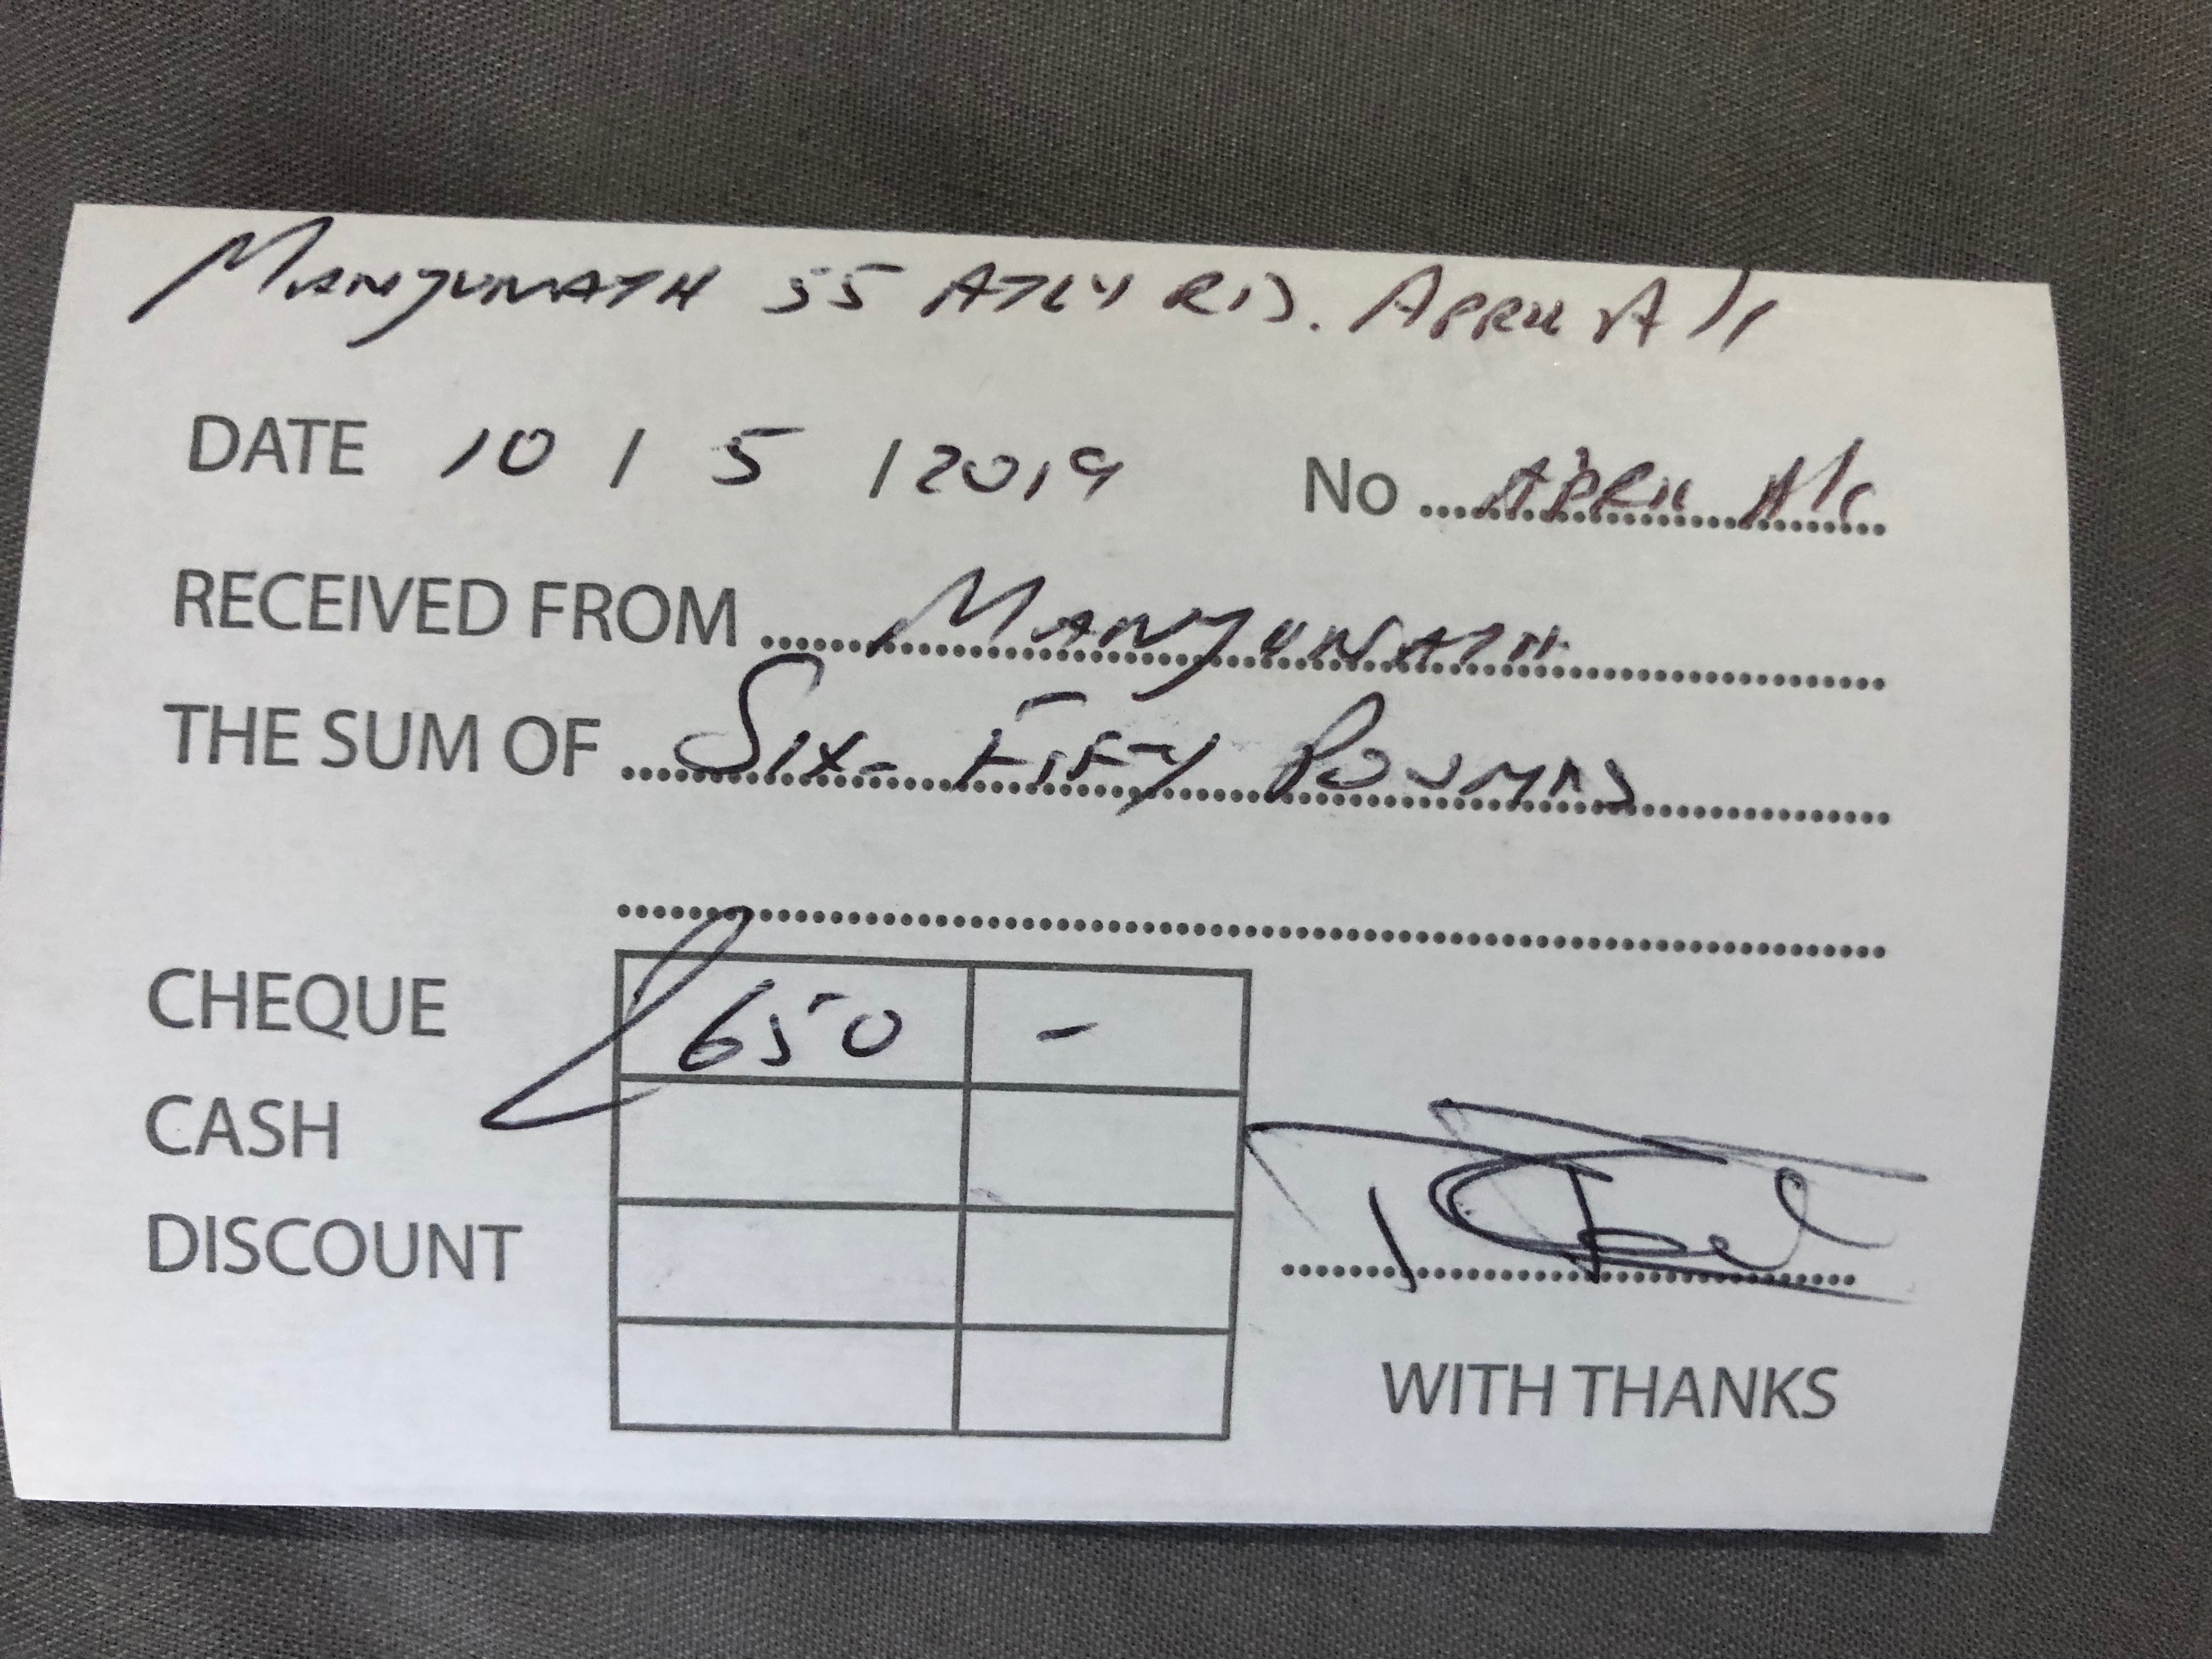 MANJUNATH 55 ATLY RD. APRIL A/c
DATE 10 / 5 / 2019 No APRIL A/c
RECEIVED FROM MANJUNATH
THE SUM OF SIX- FIFTY POUNDS
CHEQUE 650 -
CASH
DISCOUNT
WITH THANKS